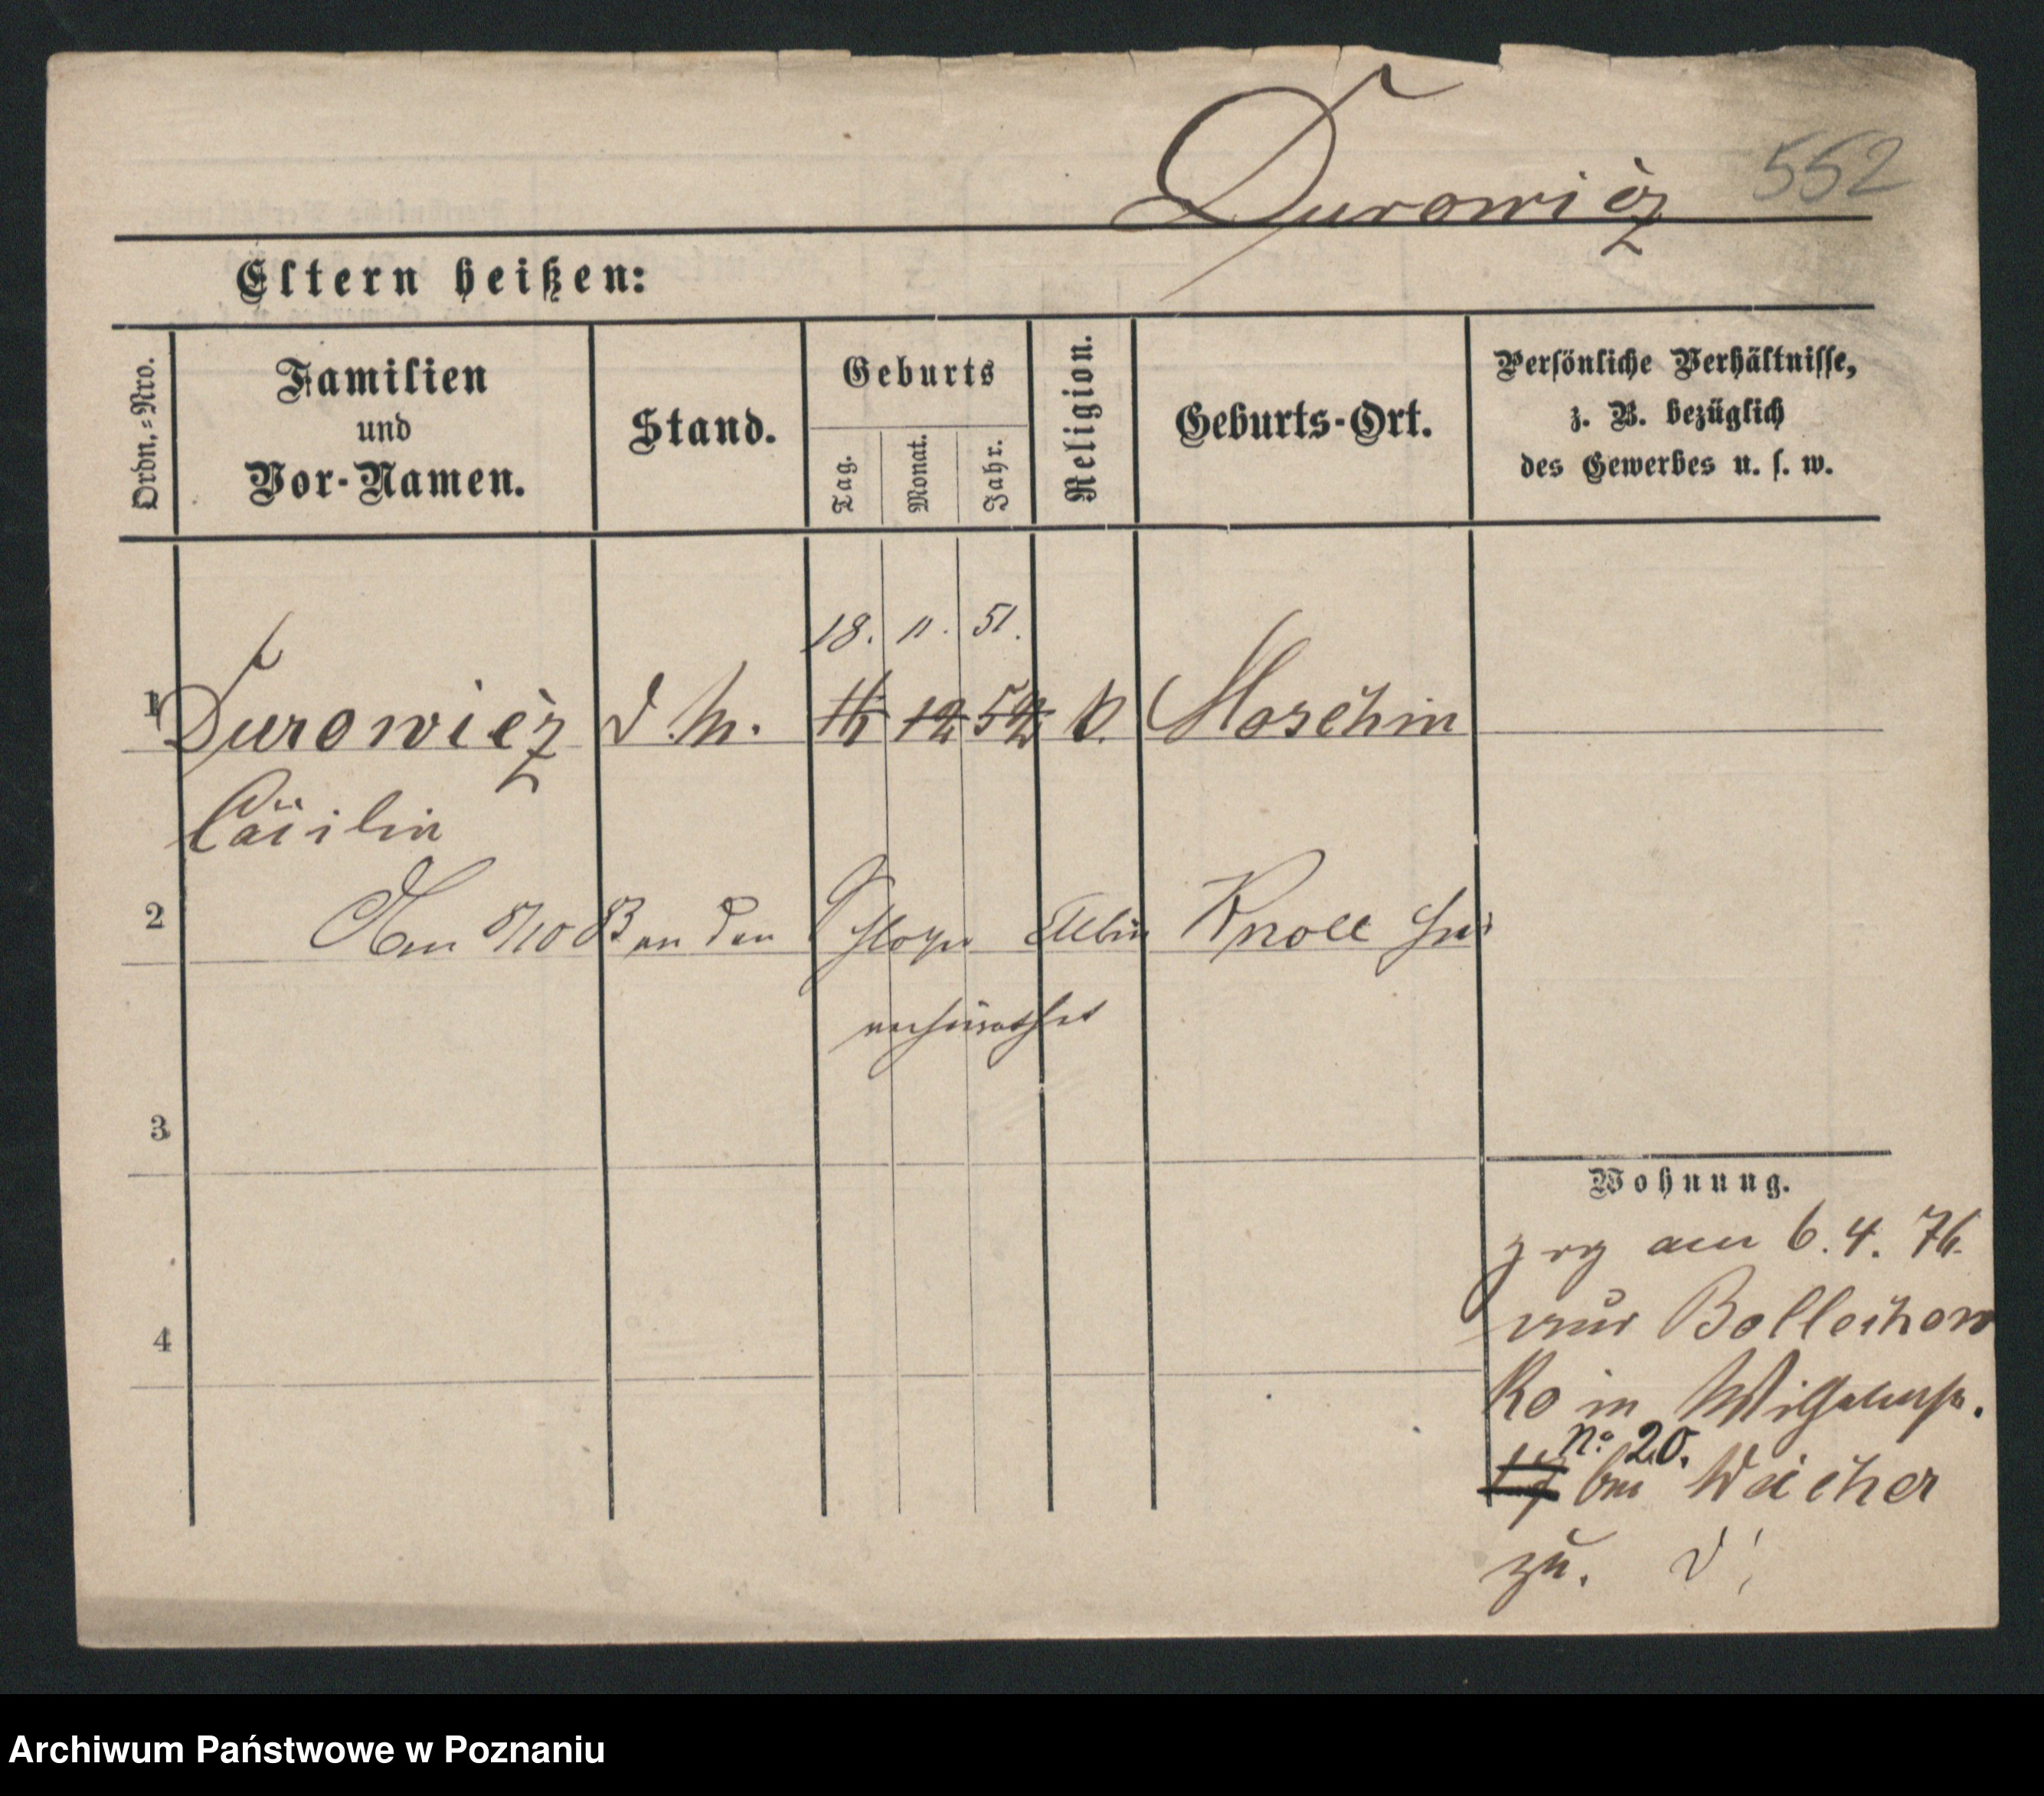 Durowicz 552
Eltern heißen:
Ordn.-Nro.
Familien
und
Vor-Namen.
Stand.
Geburts
Tag.
Monat.
Jahr.
Religion.
Geburts-Ort.
Persönliche Verhältnisse,
z. B. bezüglich
des Gewerbes u. s. w.
18. 11. 51.
1 Durowicz d. M. 16 12 52 k. Moschin
Cäcilie
2 Am 8/10 83 an den Albin Knoll hier
verheirathet
3
Wohnung.
zog am 6. 4. 76
aus Bollechow
4
ko in Wilhelmstr.
No 20.
17 bei Weicher
zu.
Archiwum Państwowe w Poznaniu